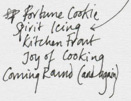 Fortune Cookie
Spirit Icing
Kitchen Frost
Joy of Cooking
Coming Round (and again)